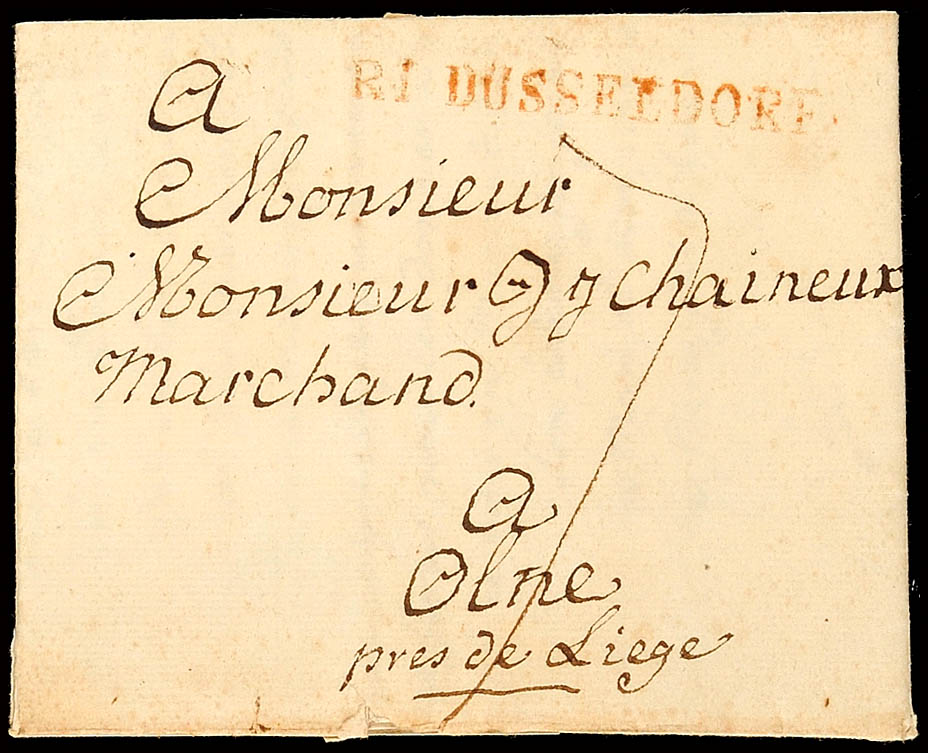 R1 DÜSSELDORF.
A
Monsieur
Monsieur J J Chaineux
Marchand.
A
Olne
pres de Liege